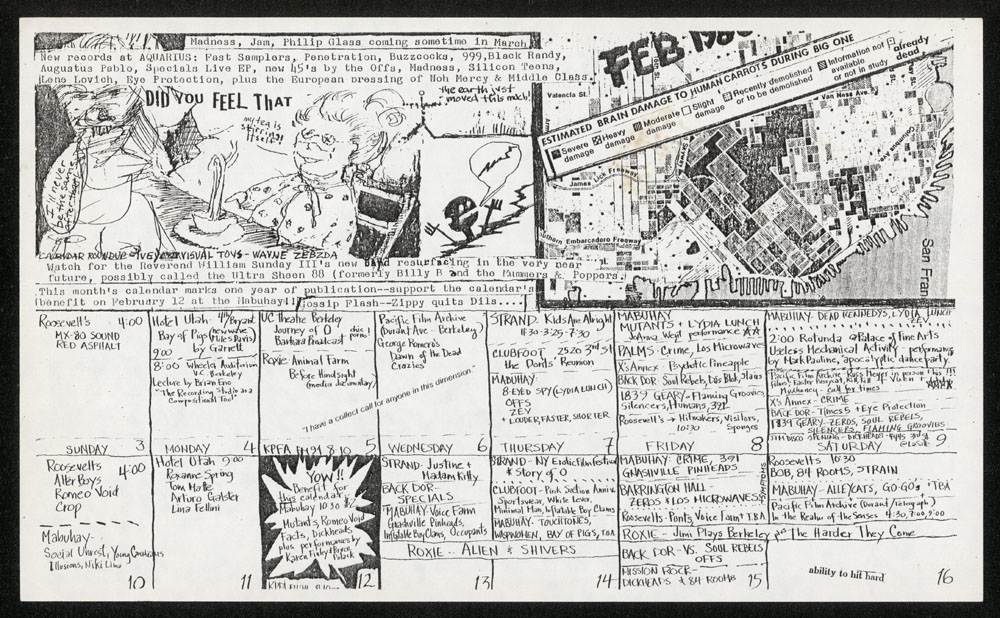 Madness, Jam, Philip Glass coming sometime in March
New records at AQUARIUS: Past Samplers, Penetration, Buzzcocks, 999, Black Randy,
Augustus Pablo, Specials Live EP, new 45's by the Offs, Madness, Silicon Teens,
Lene Lovich, Eye Protection, plus the European pressing of Noh Mercy & Middle Class.
DID YOU FEEL THAT
my tea is
stirring
itself!
the earth just
moved this much!
I'll never
be the same
after
WAYNE ZEBZDA
Watch for the Reverend William Sunday III's new band resurfacing in the very near
future, possibly called the Ultra Sheen 88 (formerly Billy B and the Mummers & Poppers.
This month's calendar marks one year of publication--support the calendar's
benefit on February 12 at the Mabuhay!!
Gossip Flash--Zippy quits Dils....
FEB 1980
ESTIMATED BRAIN DAMAGE TO HUMAN CARROTS DURING BIG ONE
Severe damage
Heavy damage
Moderate damage
Slight damage
Recently demolished or to be demolished
Information not available or not in study
already dead
Valencia St.
Van Ness Ave.
James Lick Freeway
Embarcadero Freeway
San Fran
Roosevelt's 4:00
MX-80 SOUND
RED ASPHALT
SUNDAY 3
Hotel Utah- 4th/Bryant
Bay of Pigs (newwave Miles Davis)
9:00 by Garrett
8:00 Wheeler Auditorium
U.C. Berkeley
Lecture by Brian Eno
"The Recording Studio as a
Compositional Tool"
MONDAY 4
UC Theatre Berkeley
Journey of O
Barbara Broadcast
chic porn
Roxie- Animal Farm
Before Hindsight
(media documentary)
KPFA FM 94 8-10 5
Pacific Film Archive
(Durant Ave - Berkeley)
George Romero's
Dawn of the Dead
Crazies
"I have a collect call for anyone in this dimension."
WEDNESDAY 6
STRAND. Kids Are Alright
11:30-3:25-7:30
CLUBFOOT 2520 3rd St
the Donts' Reunion
MABUHAY-
8-EYED SPY (LYDIA LUNCH)
OFFS
ZEV
+ LOUDER, FASTER, SHORTER
THURSDAY 7
MABUHAY
MUTANTS + LYDIA LUNCH
JoAnna Went performance ☆☆
PALMS- Crime, Los Microwaves
X's Annex- Psychotic Pineapple
BACK DOR- Soul Rebels,
1839 GEARY- Flaming Groovies,
Silencers, Humans, 391
Roosevelt's → Hitmakers, Visitors,
10:30 Sponges
FRIDAY 8
MABUHAY- DEAD KENNEDYS, LYDIA LUNCH
2:00 Rotunda @ Palace of Fine Arts
Useless Mechanical Activity performance
by Mark Pauline, apocalyptic dance party.
X's Annex - CRIME
BACK DOR- TIMES 5 + Eye Protection
1839 GEARY- ZEROS, SOUL REBELS,
SILENCERS, FLAMING GROOVIES
SATURDAY 9
Roosevelts 4:00
Alter Boys
Romeo Void
Crop
Mabuhay-
Social Unrest, Young Canadians
Illusions, Niki Limo
10
Hotel Utah 9:00
Roxanne Spring
Tom Matte
Arturo Galster
Lina Fellini
11
YOW!!
Benefit for
this calendar
Mabuhay 10:30
Mutants, Romeo Void
Facts, Dickheads
plus performances by
Karen Finley & Bruce
Polack
12
STRAND- Justine +
Madam Kitty
BACK DOR-
SPECIALS
MABUHAY- Voice Farm
Gnashville Pinheads,
Inflatable Boy Clams, Occupants
ROXIE- Alien & SHIVERS
13
STRAND- NY Erotic Film Festival
& Story of O
CLUBFOOT- Pink Section Anniv.
Sportswear, White Lever,
Minimal Man, Inflatable Boy Clams
MABUHAY- TOUCHTONES,
WASPWOMEN, BAY OF PIGS, TBA
14
MABUHAY- CRIME, 391
GNASHVILLE PINHEADS
BARRINGTON HALL-
ZEROS & LOS MICROWAVES
SYMPTOMS
Roosevelts- Ponts, Voice Farm + T.B.A
ROXIE - Jimi Plays Berkeley & The Harder They Come
BACK DOR- VS. SOUL REBELS
OFFS
MISSION ROCK-
DICKHEADS & 84 ROOMS
15
Roosevelts 10:30
BOB, 84 ROOMS, STRAIN
MABUHAY- ALLEYCATS, GO-GO's TBA
In the Realm of the Senses 4:30, 7:00, 9:00
ability to hit hard
16